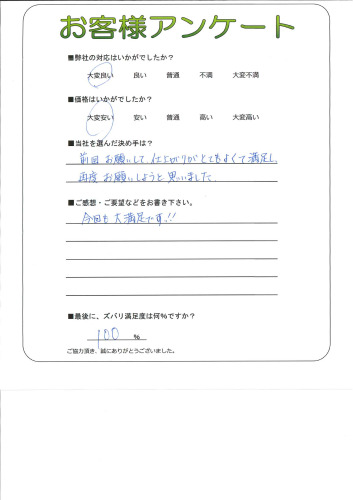 お客様アンケート
■弊社の対応はいかがでしたか?
大変良い 良い 普通 不満 大変不満
■価格はいかがでしたか?
大変安い 安い 普通 高い 大変高い
■当社を選んだ決め手は?
前回お願いして、仕上がりがとてもよくて満足し、
再度お願いしようと思いました。
■ご感想・ご要望などをお書き下さい。
今回も大満足です!!
■最後に、ズバリ満足度は何%ですか?
100 %
ご協力頂き、誠にありがとうございました。